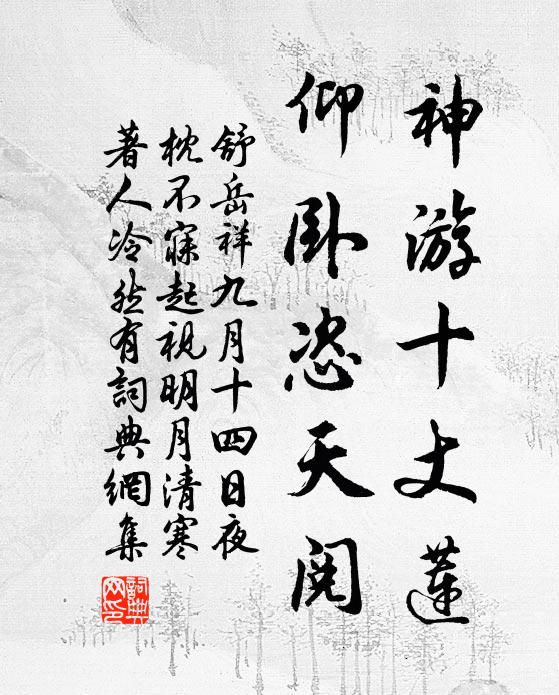 神游十丈蓮
仰卧恣天閱
舒岳祥九月十四日夜
枕不寐起視明月清寒
著人冷然有詞典網集